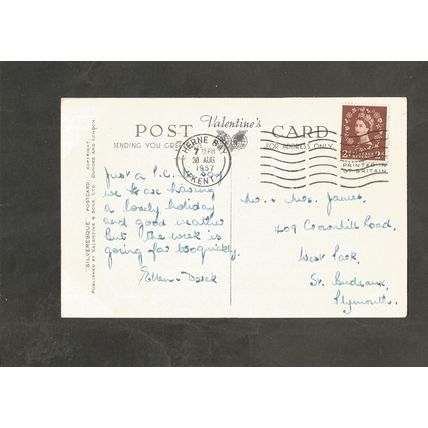 Valentine's
POST CARD
SENDING YOU GREE
FOR ADDRESS ONLY
HERNE BAY
7 PM
30 AUG
1957
KENT
2D 2D
PRINTED IN
GT BRITAIN
"SILVERESQUE" POSTCARD COPYRIGHT
PUBLISHED BY VALENTINE & SONS LTD. DUNDEE AND LONDON
Just a P.C. to say
we are having
a lovely holiday
and good weather
But the week is
going far too quickly.
Derek
Mr. & Mrs. James.
109 Road,
West Park,
St. Budeaux,
Plymouth.